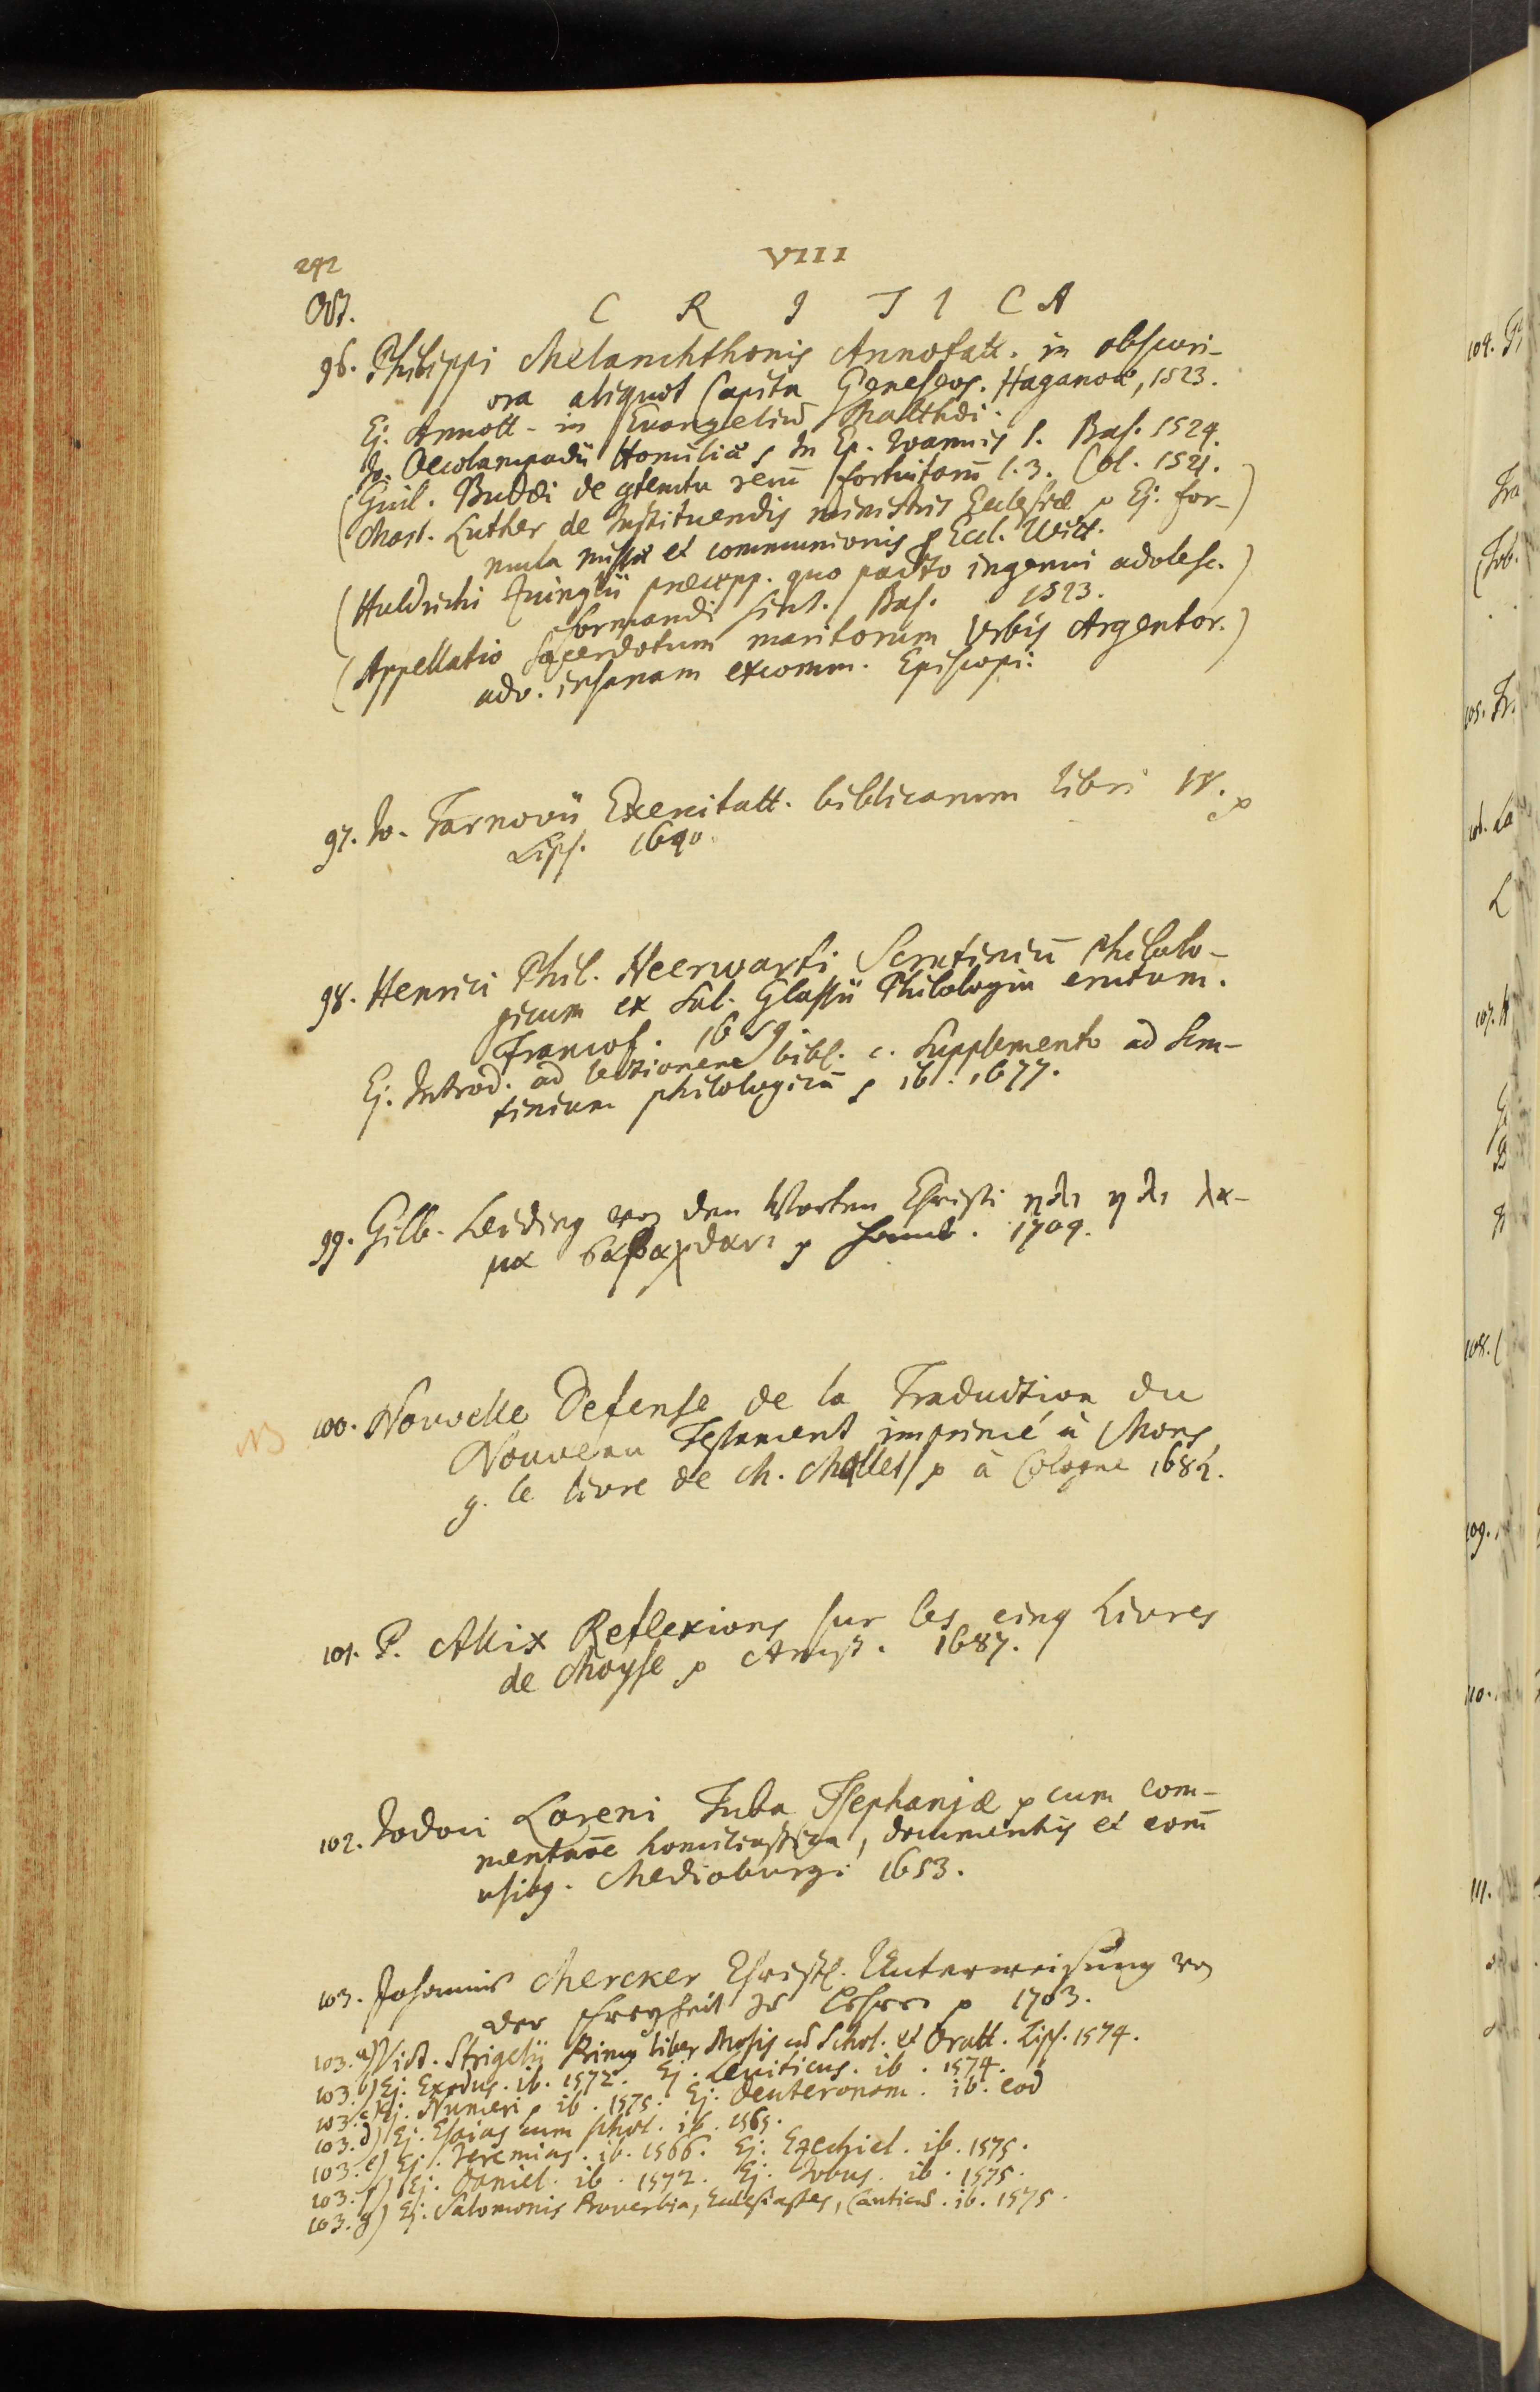 242
VIII
Oct.
C R I T I C A
96. Philippi Melanchthonis Annotatt. in obscuri-
ora aliquot Capita Geneseos. Haganoæ, 1523.
Ej. Annott. in Evangeliū Matthæi.
Jo. Oecolampadii Homiliæ in Ep. Joannis 1. Bas. 1524.
(Guil. Budæi de contemtu rerū fortuitarū l. 3. Col. 1521.)
(Mart. Luther de Instituendis ministris Ecclesiæ Ej. for-
mula missæ et communionis p Eccl. Witt.
(Huldrichi Zuinglii præcepp. quo pacto ingenui adolesc.)
formandi sint. Bas. 1523.
(Appellatio Sacerdotum maritorum Urbis Argentor.)
adv. insanam excomm. Episcopi.
97. Jo. Tarnovii Exercitatt. biblicarum libri IV.
Lips. 1640.
98. Henrici Phil. Heerwarti Scrutiniū Philolo-
gicum ex Sal. Glassii Philologia erutum.
Francof. 1659.
Ej. Introd. ad lectionem bibl. c. Supplemento ad Scru-
tinium philologicū ib. 1677.
99. Gilb. Leiding von den Worten Christi ηλι ηλι λα-
μα σαβαχθανι Hamb. 1709.
NB
100. Nouvelle Defense de la Traduction du
Nouveau Testament imprimé à Mons,
g. le livre de M. Mallet à Cologne 1682.
101. P. Allix Reflexions sur les cinq Livres
de Moyse Amst. 1687.
102. Jodoci Lareni Tuba Tsephanjæ cum com-
mentar̄e homiliastica, documentis et eorū
usibg. Medioburgi 1653.
103. Johannis Mercker Christl. Unterweisung von
der Freyheit 1703.
103. a) Vict. Strigelii Primg liber Mosis cū Schol. et Oratt. Lips. 1574.
103. b) Ej. Exodus. ib. 1572. Ej. Leviticus. ib. 1574.
103. c) Ej. Numeri ib. 1575. Ej. Deuteronom. ib. eod
103. d) Ej. Esaias cum schol. ib. 1565.
103. e) Ej. Jeremias. ib. 1566. Ej. Ezechiel. ib. 1575.
103. f) Ej. Daniel. ib. 1572. Ej. Jobus. ib. 1575.
103. g) Ej. Salomonis Proverbia, Ecclesiastes, Canticū. ib. 1575.